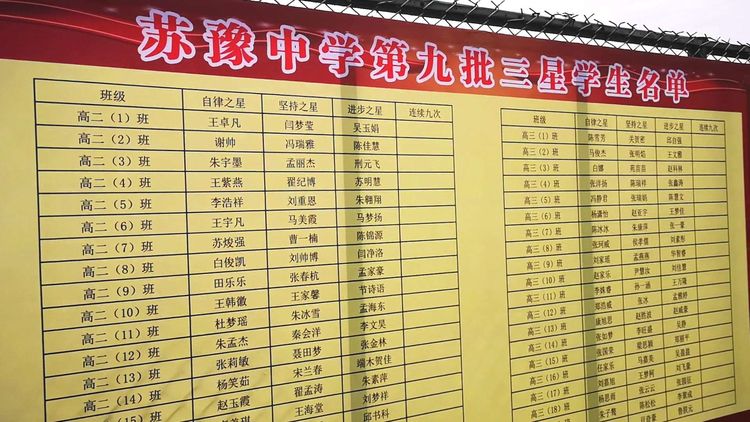 苏豫中学第九批三星学生名单
班级 自律之星 坚持之星 进步之星 连续九次
高二（1）班 王卓凡 闫梦莹 吴玉娟
高二（2）班 谢帅 冯瑞雅 陈佳慧
高二（3）班 朱宇墨 孟丽杰 荆元飞
高二（4）班 王紫燕 翟纪博 苏明慧
高二（5）班 李浩祥 刘重恩 朱翱翔
高二（6）班 王宇凡 马美霞 马梦扬
高二（7）班 苏焌强 曹一楠 陈锦源
高二（8）班 白俊凯 刘帅博 闫净洛
高二（9）班 田乐乐 张春杭 孟家豪
高二（10）班 王韩徽 王家馨 节诗语
高二（11）班 杜梦瑶 朱冰雪 孟海东
高二（12）班 朱孟杰 秦会洋 李文昊
高二（13）班 张莉敏 聂田梦 张金林
高二（14）班 杨笑茹 宋兰春 端木贺佳
高二（15）班 赵玉霞 翟孟涛 朱素萍
王海堂 邱书科
班级 自律之星 坚持之星 进步之星 连续九次
高三（1）班 陈常芳 关贺密 邱自强
高三（2）班 马俊杰 张明焰 王文雅
高三（3）班 白娜 苑苗苗 赵科林
高三（4）班 张洋扬 陈瑞祥 张鑫涛
高三（5）班 冯静君 张瑞娟 陈慧文
高三（6）班 杨潇怡 赵亚宇 王梦佳
高三（7）班 陈冰冰 朱康萍 张一豪
高三（8）班 张珂威 侯孝儒 刘素彤
高三（9）班 刘家瑶 孟燕燕 华智睿
高三（10）班 赵家乐 尹慧汝 刘佳慧
高三（11）班 李姝睿 孙一涵 王乃隆
高三（12）班 郑浩威 张冰 孟雅婷
高三（13）班 康旭思 赵胜波 赵威豪
高三（14）班 张如梦 李旺盛 吴静
高三（15）班 张国荣 梁思颖 郑丽平
高三（16）班 任家乐 马嘉美 吴晨晨
高三（17）班 刘嘉旭 王梦柯 刘飞扬
高三（18）班 杨思雨 张云云 张锁征
朱子魏 陈松松 李德康